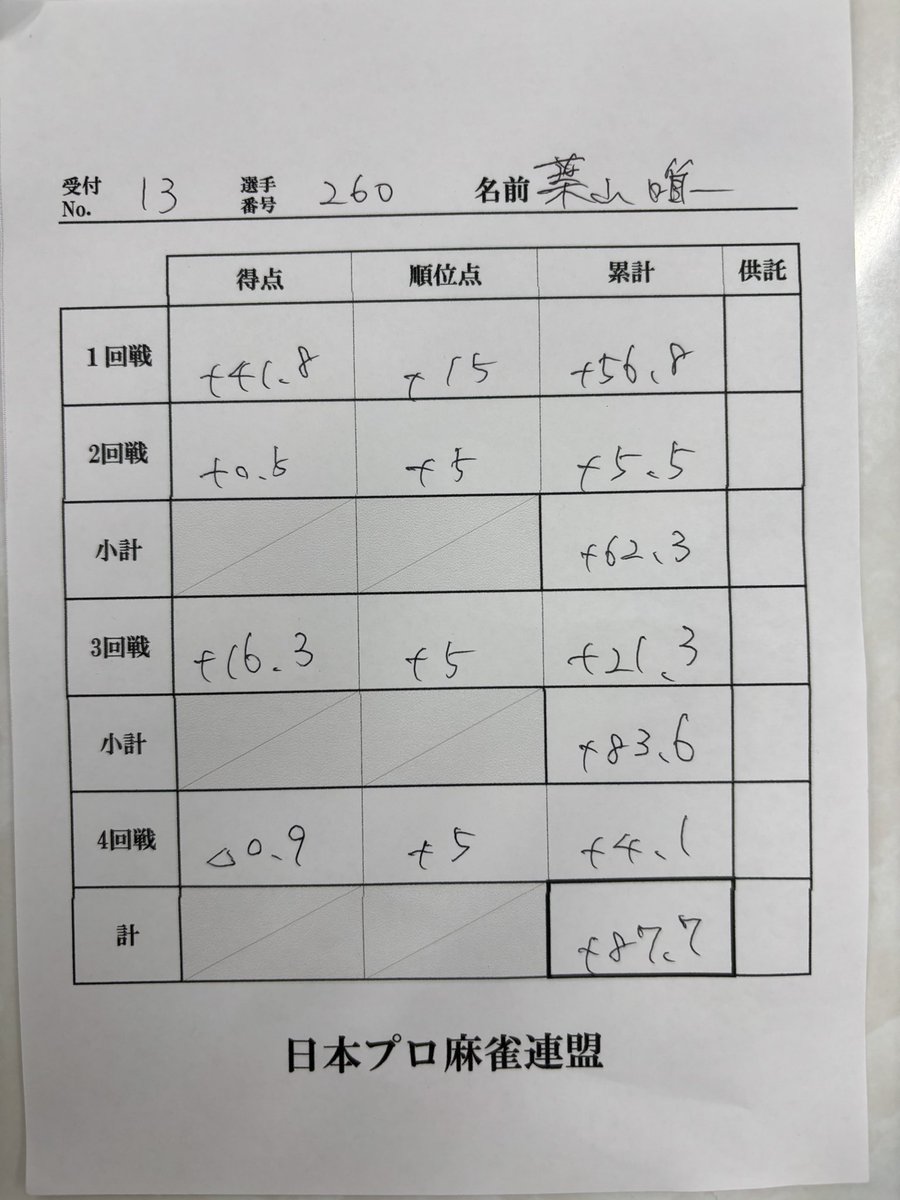 受付No. 13 選手番号 260 名前 葉山唯一
得点 順位点 累計 供託
1回戦 +41.8 +15 +56.8
2回戦 +0.5 +5 +5.5
小計 +62.3
3回戦 +16.3 +5 +21.3
小計 +83.6
4回戦 △0.9 +5 +4.1
計 +87.7
日本プロ麻雀連盟